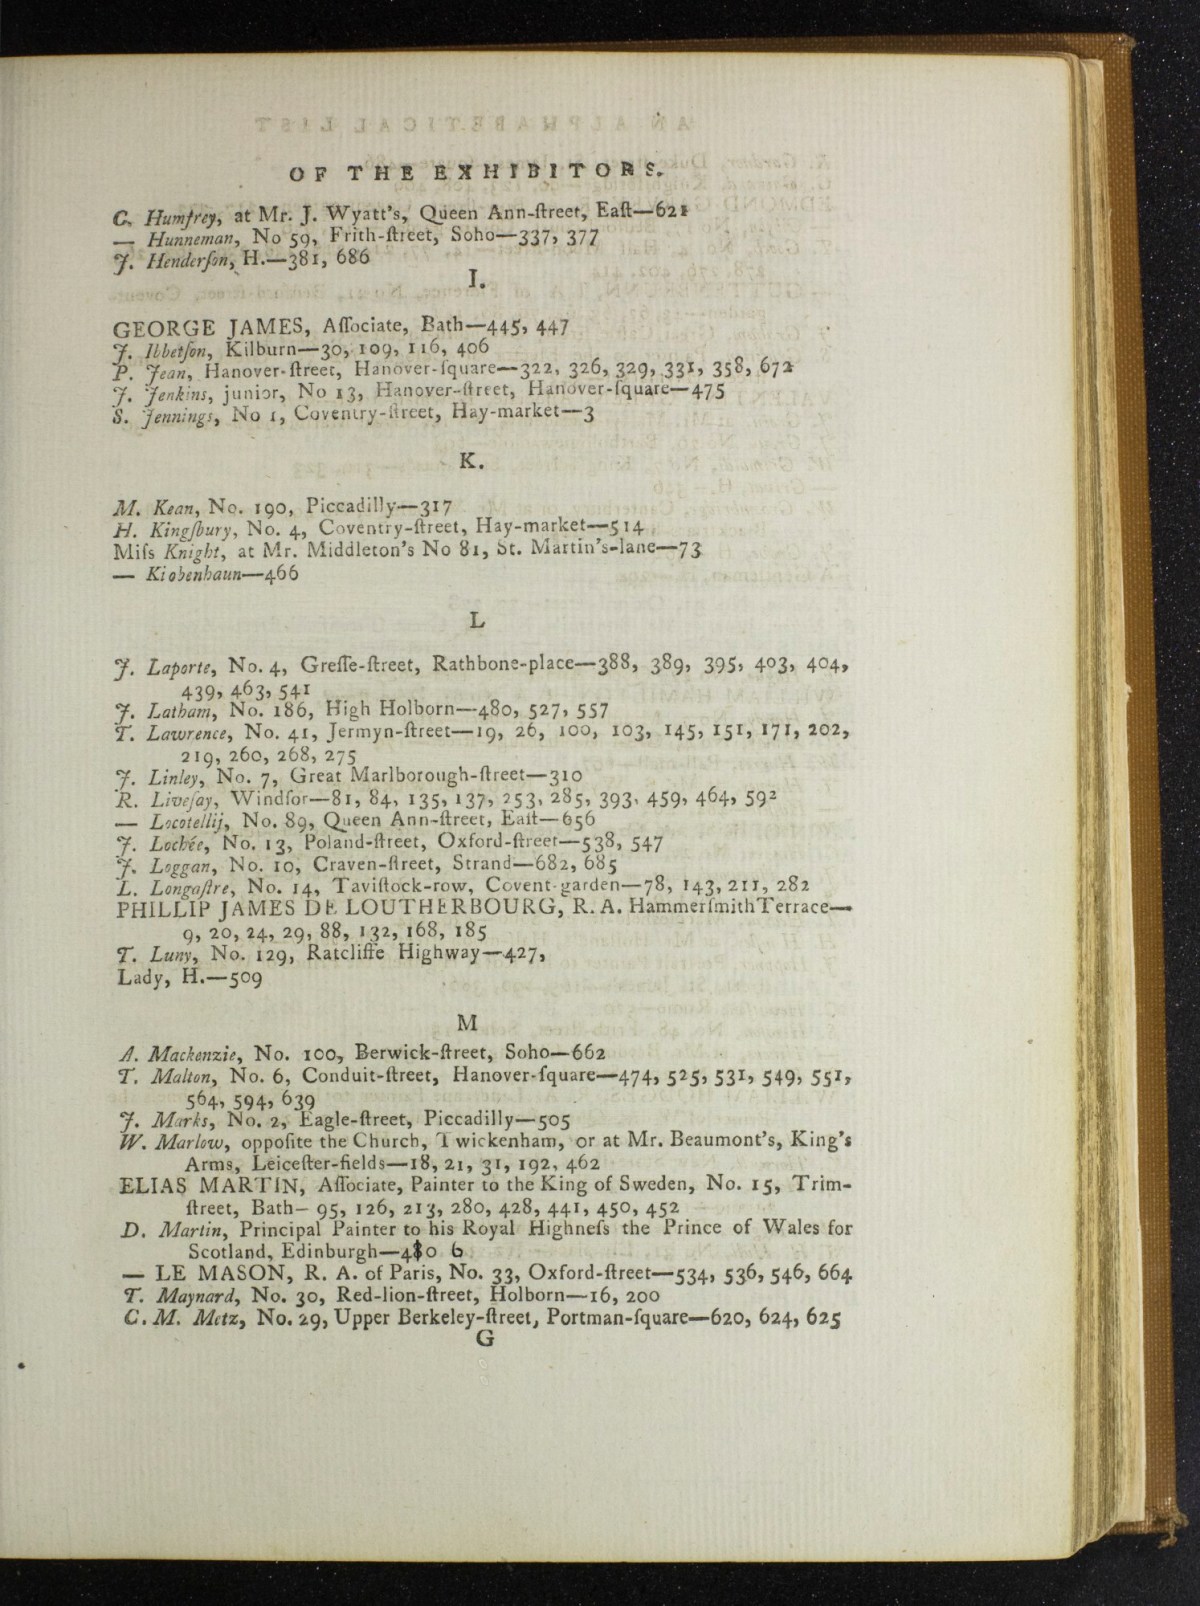 OF THE EXHIBITORS.
C. Humfrey, at Mr. J. Wyatt's, Queen Ann-ſtreet, Eaſt—621
— Hunneman, No 59, Frith-ſtreet, Soho—337, 377
J. Henderſon, H.—381, 686
I.
GEORGE JAMES, Aſſociate, Bath—445, 447
J. Ibbetſon, Kilburn—30, 109, 116, 406
P. Jean, Hanover-ſtreet, Hanover-ſquare—322, 326, 329, 331, 358, 672
J. Jenkins, junior, No 13, Hanover-ſtreet, Hanover-ſquare—475
S. Jennings, No 1, Coventry-ſtreet, Hay-market—3
K.
M. Kean, No. 190, Piccadilly—317
H. Kingſbury, No. 4, Coventry-ſtreet, Hay-market—514
Miſs Knight, at Mr. Middleton's No 81, St. Martin's-lane—73
— Kiobenhaun—466
L
J. Laporte, No. 4, Greſſe-ſtreet, Rathbone-place—388, 389, 395, 403, 404,
439, 463, 541
J. Latham, No. 186, High Holborn—480, 527, 557
T. Lawrence, No. 41, Jermyn-ſtreet—19, 26, 100, 103, 145, 151, 171, 202,
219, 260, 268, 275
J. Linley, No. 7, Great Marlborough-ſtreet—310
R. Liveſay, Windſor—81, 84, 135, 137, 253, 285, 393, 459, 464, 592
— Locotellij, No. 89, Queen Ann-ſtreet, Eaſt—656
J. Lochée, No. 13, Poland-ſtreet, Oxford-ſtreet—538, 547
J. Loggan, No. 10, Craven-ſtreet, Strand—682, 685
L. Longaſtre, No. 14, Taviſtock-row, Covent-garden—78, 143, 211, 282
PHILLIP JAMES DE LOUTHERBOURG, R. A. Hammerſmith Terrace—
9, 20, 24, 29, 88, 132, 168, 185
T. Luny, No. 129, Ratcliffe Highway—427,
Lady, H.—509
M
A. Mackenzie, No. 100, Berwick-ſtreet, Soho—662
T. Malton, No. 6, Conduit-ſtreet, Hanover-ſquare—474, 525, 531, 549, 551,
564, 594, 639
J. Marks, No. 2, Eagle-ſtreet, Piccadilly—505
W. Marlow, oppoſite the Church, Twickenham, or at Mr. Beaumont's, King's
Arms, Leiceſter-fields—18, 21, 31, 192, 462
ELIAS MARTIN, Aſſociate, Painter to the King of Sweden, No. 15, Trim-
ſtreet, Bath—95, 126, 213, 280, 428, 441, 450, 452
D. Martin, Principal Painter to his Royal Highneſs the Prince of Wales for
Scotland, Edinburgh—
— LE MASON, R. A. of Paris, No. 33, Oxford-ſtreet—534, 536, 546, 664
T. Maynard, No. 30, Red-lion-ſtreet, Holborn—16, 200
C. M. Metz, No. 29, Upper Berkeley-ſtreet, Portman-ſquare—620, 624, 625
G